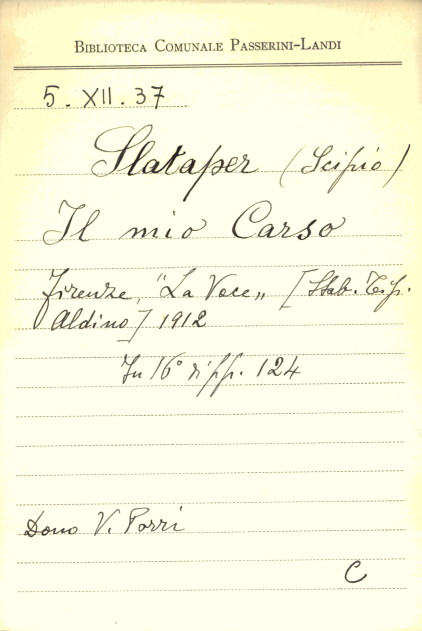 BIBLIOTECA COMUNALE PASSERINI-LANDI
5. XII. 37
Slataper (Scipio)
Il mio Carso
Firenze, "La Voce„ [Stab. Tip.
Aldino] 1912
In 16° di pp. 124
Dono V. Porri
C